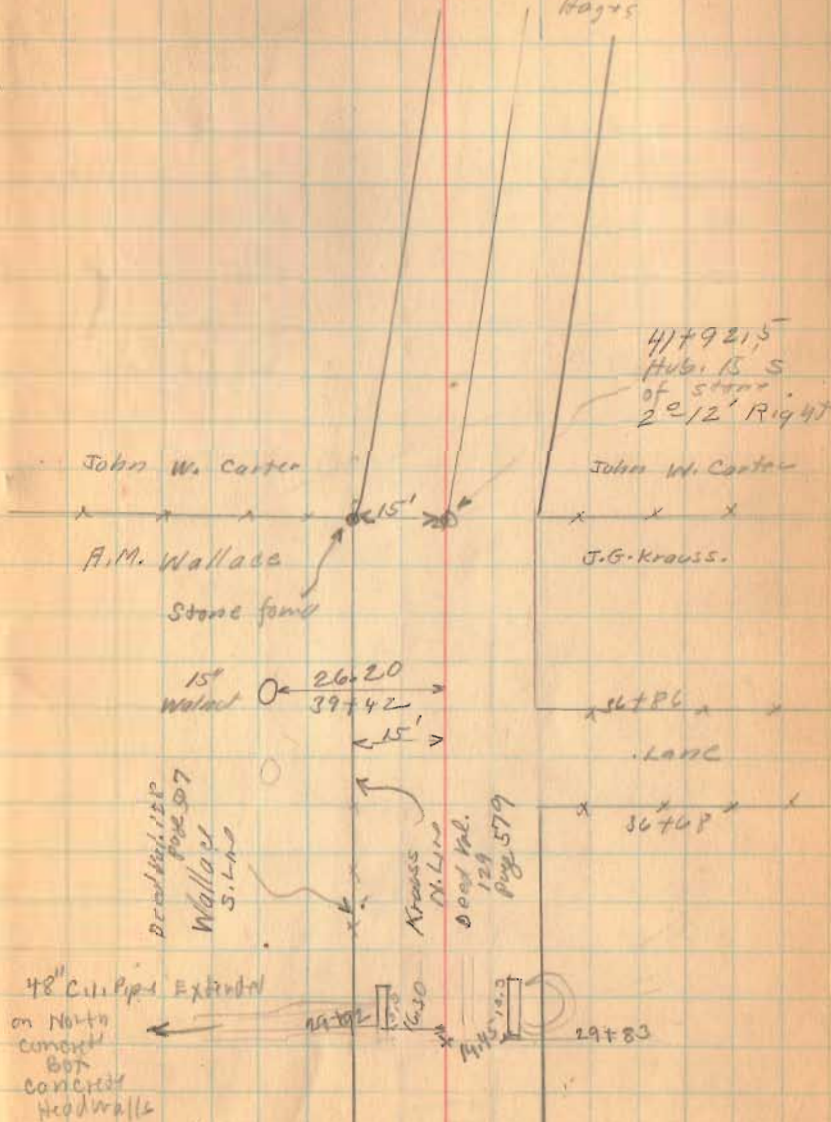 Hayes
41+92.5
Hub. 15' S
of stone
2° 12' Right
John W. Carter
John W. Carter
15'
A.M. Wallace
J.G. Krauss.
Stone found
15"
Walnut
26.20
39+42
36+86
15'
Lane
36+68
Deed Vol. 128
Page
Wallace
S. Line
Krauss
N. Line
Deed Vol.
129
Page 579
48" C.I. Pipe Extended
on North
concrete
Box
concrete
Headwalls
29+92
10.5
16.30
14.45
10.5
29+83